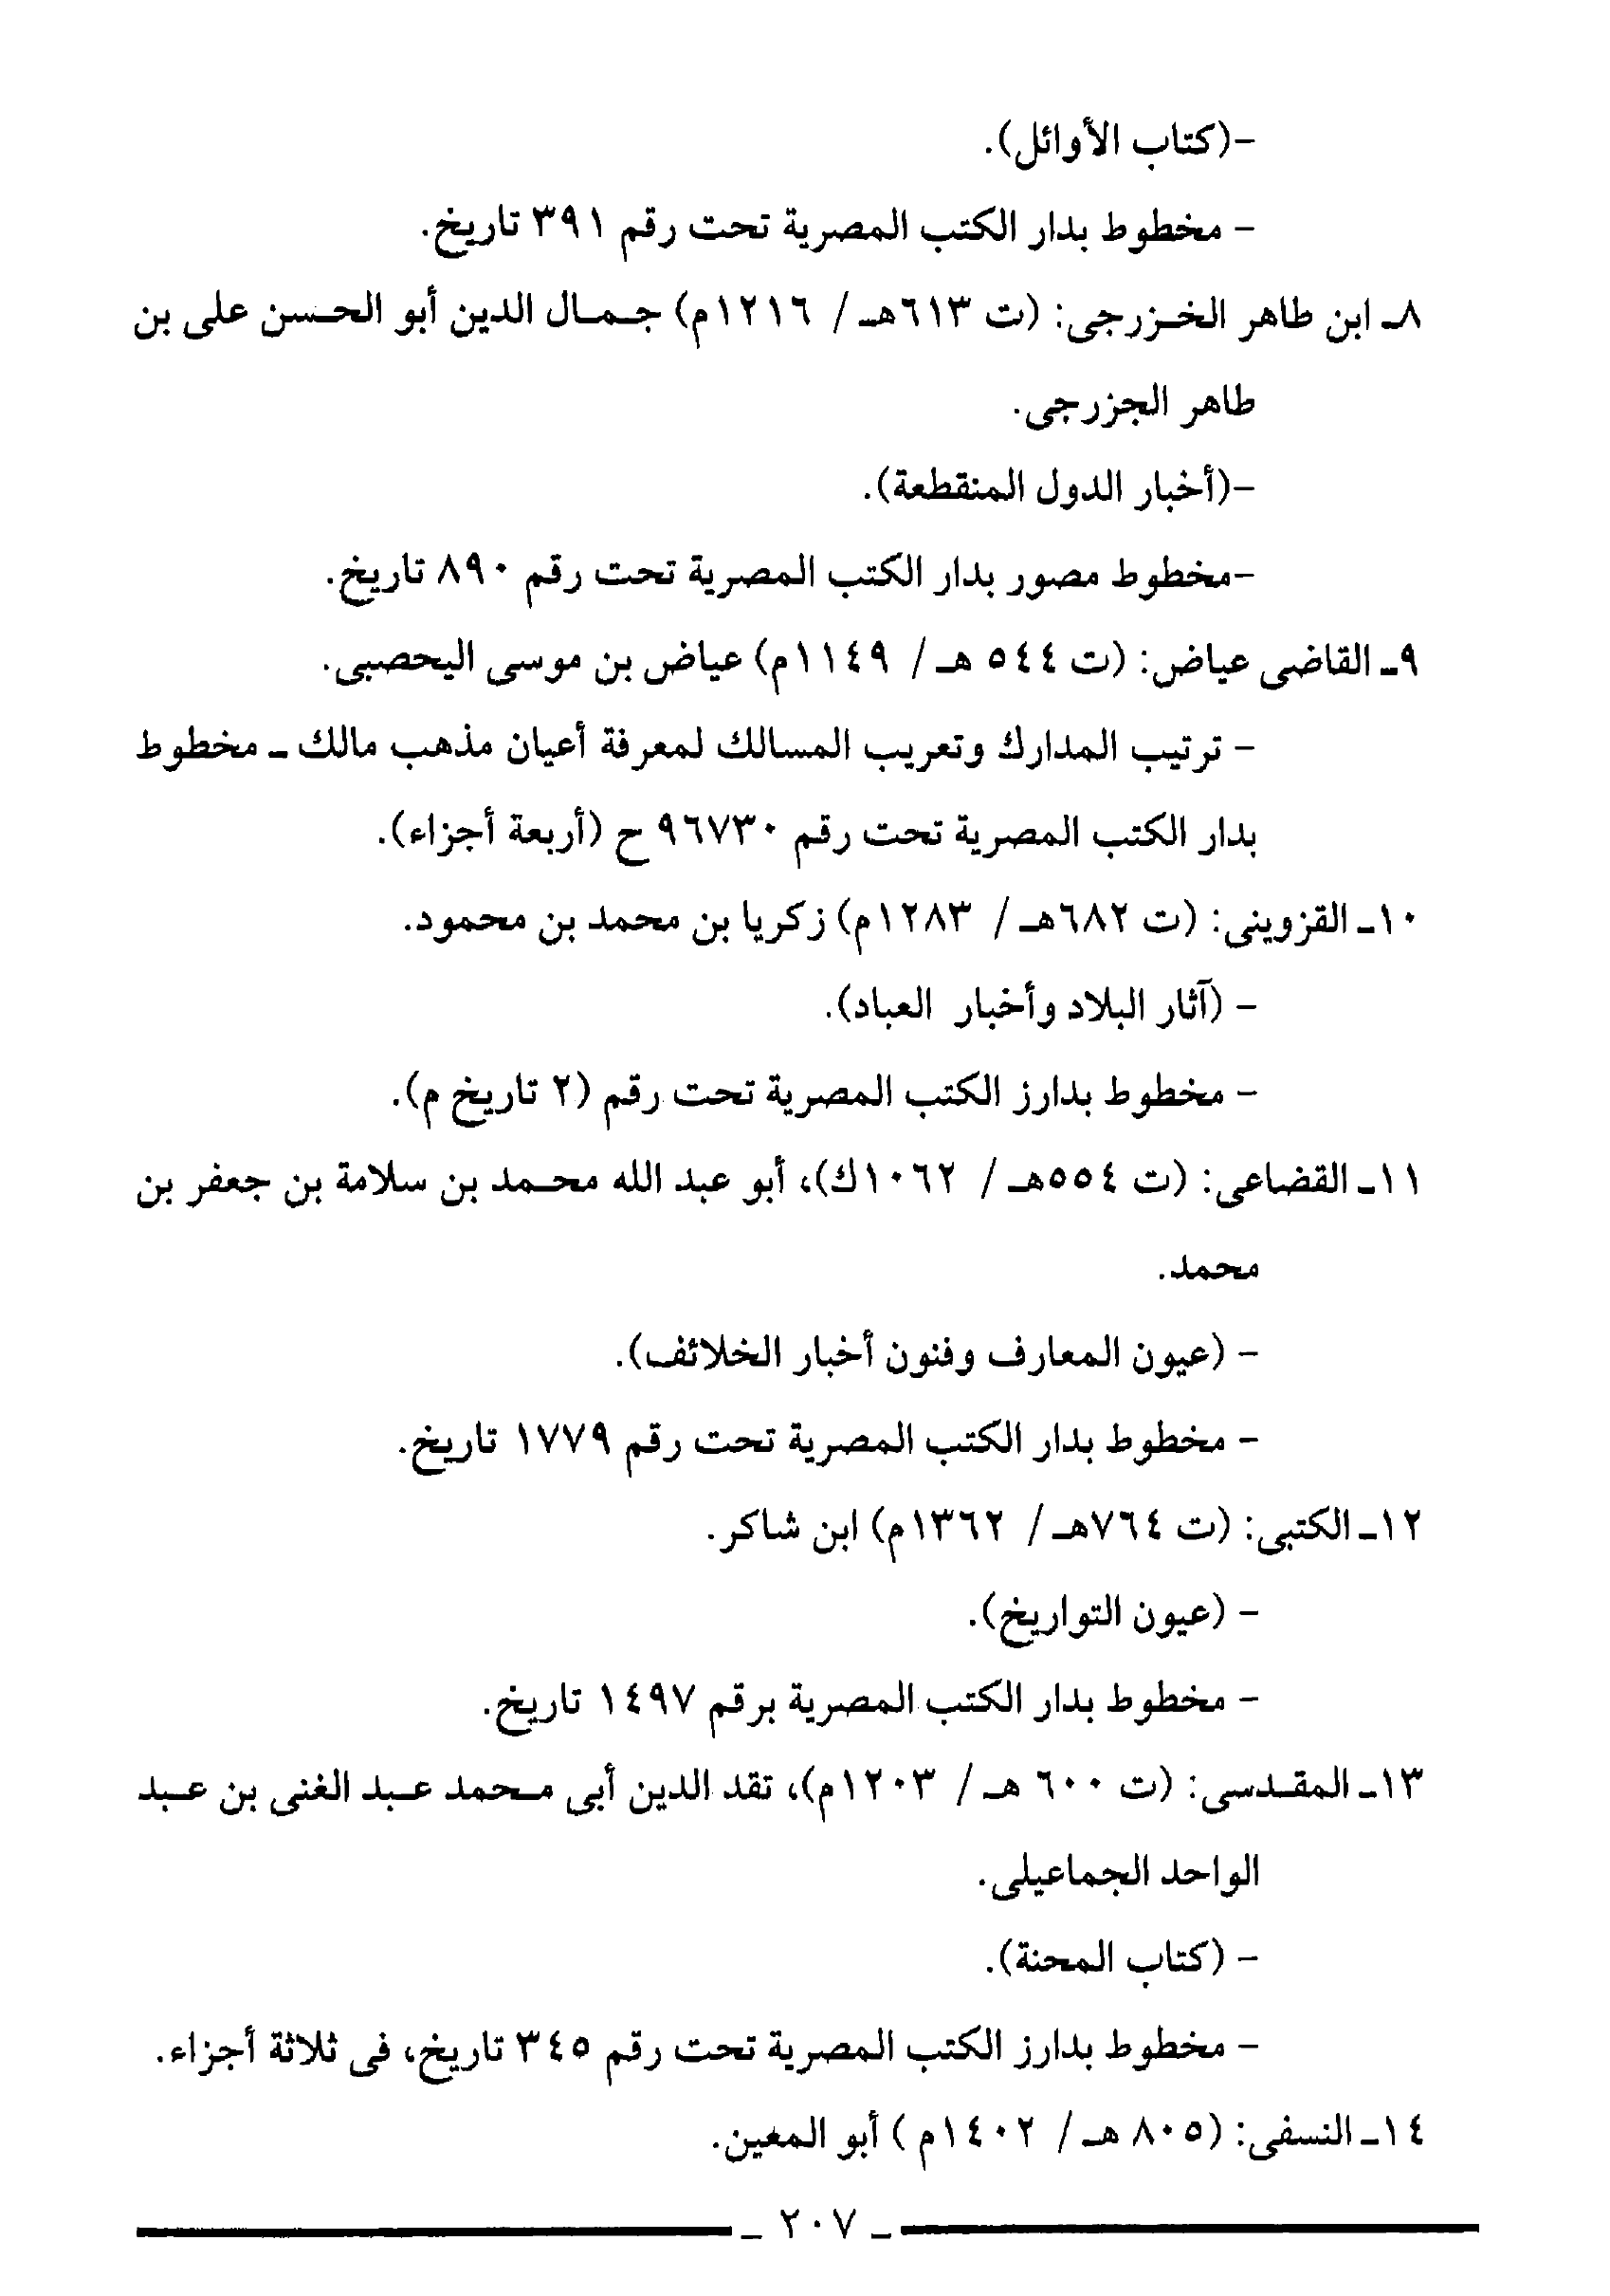 -(كتاب الأوائل).
- مخطوط بدار الكتب المصرية تحت رقم ٣٩١ تاريخ.
٨ـ ابن طاهر الخـزرجى: (ت ٦١٣هـ / ١٢١٦م) جـمـال الدين أبو الحـسن على بن
طاهر الجزرجى.
-(أخبار الدول المنقطعة).
-مخطوط مصور بدار الكتب المصرية تحت رقم ٨٩٠ تاريخ.
٩ـ القاضى عياض: (ت ٥٤٤ هـ / ١١٤٩م) عياض بن موسى اليحصبى.
- ترتيب المدارك وتعريب المسالك لمعرفة أعيان مذهب مالك ـ مخطوط
بدار الكتب المصرية تحت رقم ٩٦٧٣٠ ح (أربعة أجزاء).
١٠ـ القزوينى: (ت ٦٨٢هـ / ١٢٨٣م) زكريا بن محمد بن محمود.
- (آثار البلاد وأخبار العباد).
- مخطوط بدارز الكتب المصرية تحت رقم (٢ تاريخ م).
١١ـ القضاعى: (ت ٥٥٤هـ / ١٠٦٢ك)، أبو عبد الله محـمد بن سلامة بن جعفر بن
محمد.
- (عيون المعارف وفنون أخبار الخلائف).
- مخطوط بدار الكتب المصرية تحت رقم ١٧٧٩ تاريخ.
١٢ـ الكتبى: (ت ٧٦٤هـ / ١٣٦٢م) ابن شاكر.
- (عيون التواريخ).
- مخطوط بدار الكتب المصرية برقم ١٤٩٧ تاريخ.
١٣ـ المقـدسى: (ت ٦٠٠ هـ / ١٢٠٣م)، تقد الدين أبى مـحمد عـبد الغنى بن عـبد
الواحد الجماعيلى.
- (كتاب المحنة).
- مخطوط بدارز الكتب المصرية تحت رقم ٣٤٥ تاريخ، فى ثلاثة أجزاء.
١٤ـ النسفى: (٨٠٥ هـ / ١٤٠٢م ) أبو المعين.
ـ ٢٠٧ ـ